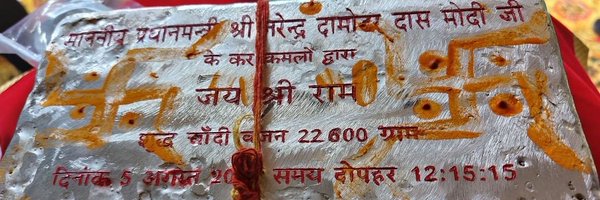 माननीय प्रधानमन्त्री श्री नरेन्द्र दामोदर दास मोदी जी
के कर कमलो द्वारा
जय श्री राम
शुद्ध चाँदी वजन 22600 ग्राम
दिनांक 5 अगस्त 20 समय दोपहर 12:15:15